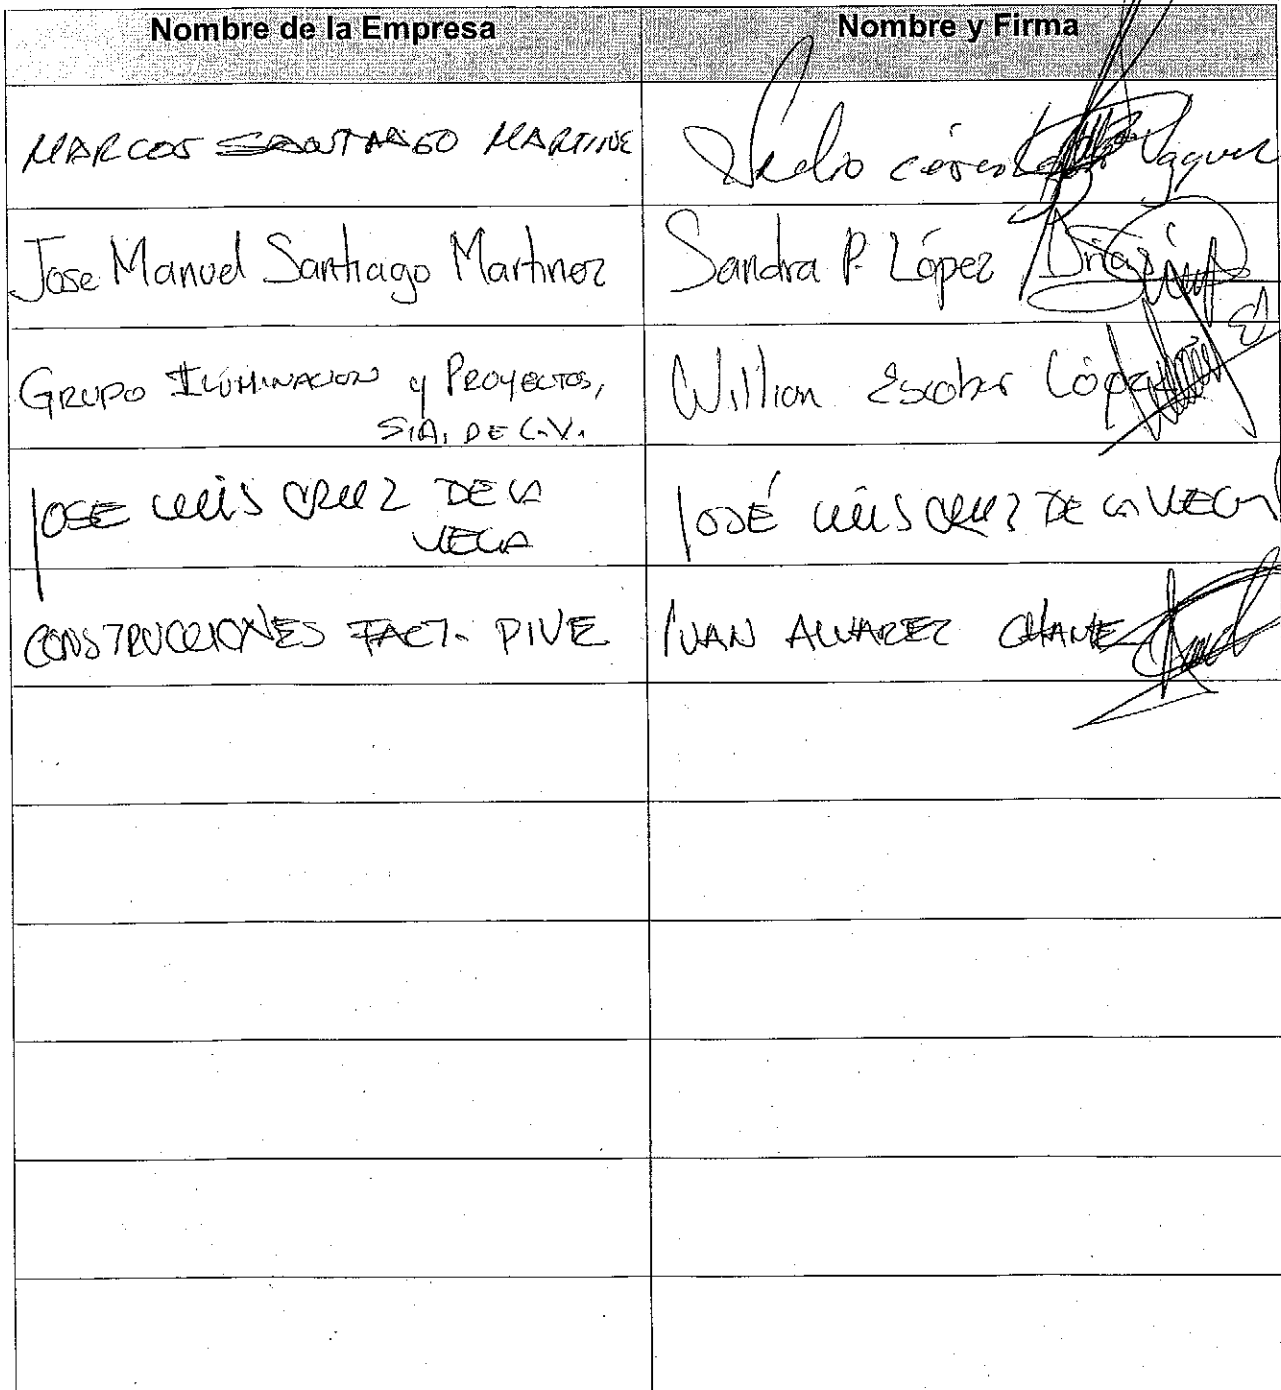 Nombre de la Empresa
Nombre y Firma
MARCOS SANTIAGO MARTINE
Jose Manuel Santiago Martinez
Sandra P. López
GRUPO ILUMINACION y PROYECTOS,
S.A. DE C.V.
Willian Escobar López
JOSE LUIS CRUZ DE LA
VEGA
JOSÉ LUIS CRUZ DE LA VEGA
CONSTRUCCIONES FACT. PIVE
IVAN ALVAREZ